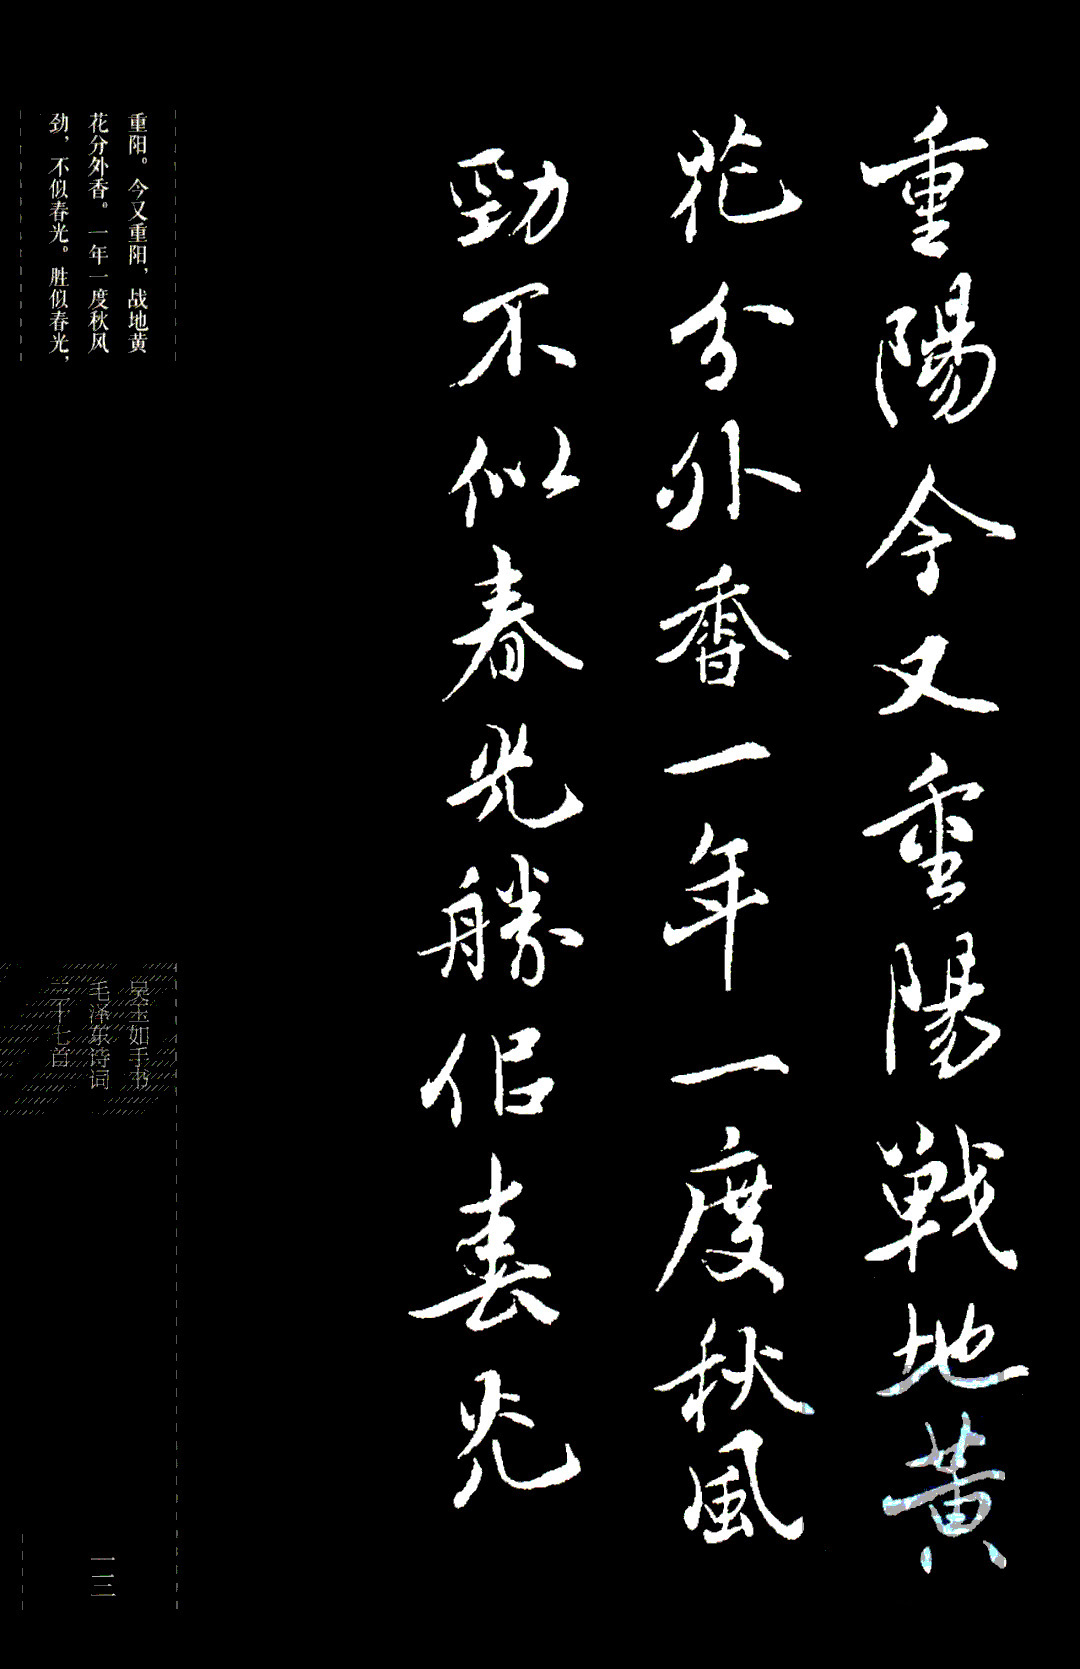 重陽今又重陽戰地黃
花分外香一年一度秋風
勁不似春光勝似春光
重阳。今又重阳，战地黄
花分外香。一年一度秋风
劲，不似春光。胜似春光，
吴玉如手书
毛泽东诗词
三十七首
一一三